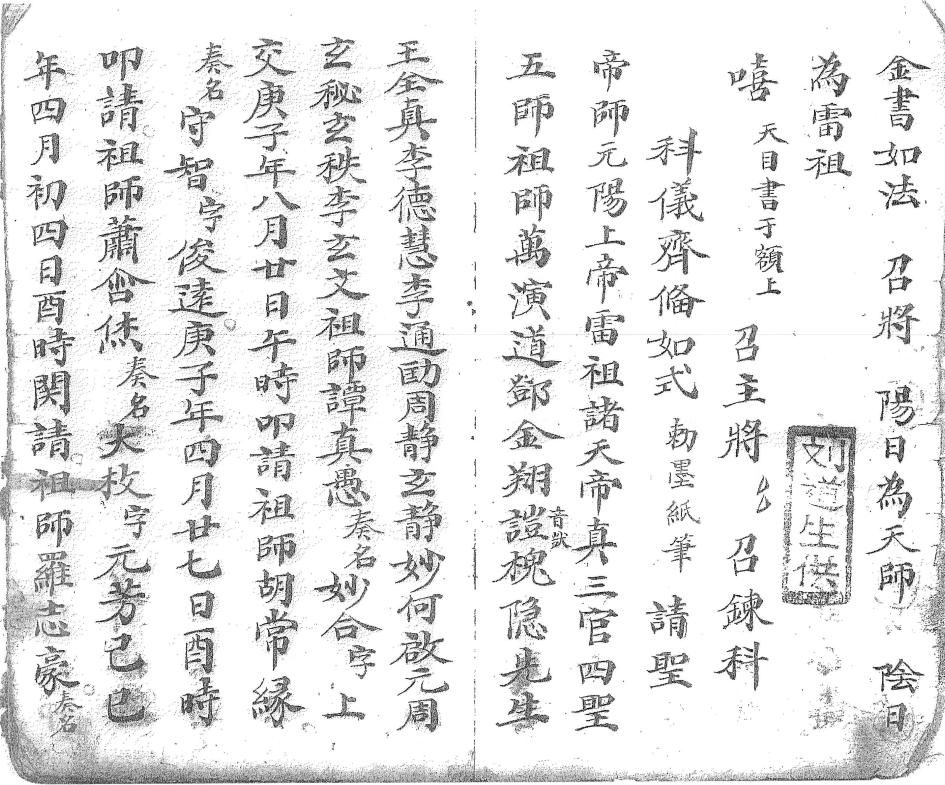 金書如法 召將 陽日為天師 陰日
為雷祖
嘻 天目書于額上 召主將 召鍊科
科儀齊俻如式 勅墨紙筆 請聖
帝師元陽上帝雷祖諸天帝真三官四聖
五師祖師萬演道鄧金翔諡槐音狀隐先生
王全真李德慧李通勔周静玄静妙何啟元周
玄秘玄秩李玄文祖師譚真愚奏名妙合字上
交庚子年八月廿日午時叩請祖師胡常縁
奏名守智字俊逺庚子年四月廿七日酉時
叩請祖師蕭啓烋奏名大枚字元芳己巳
年四月初四日酉時関請祖師羅志豪奏名
刘道生供